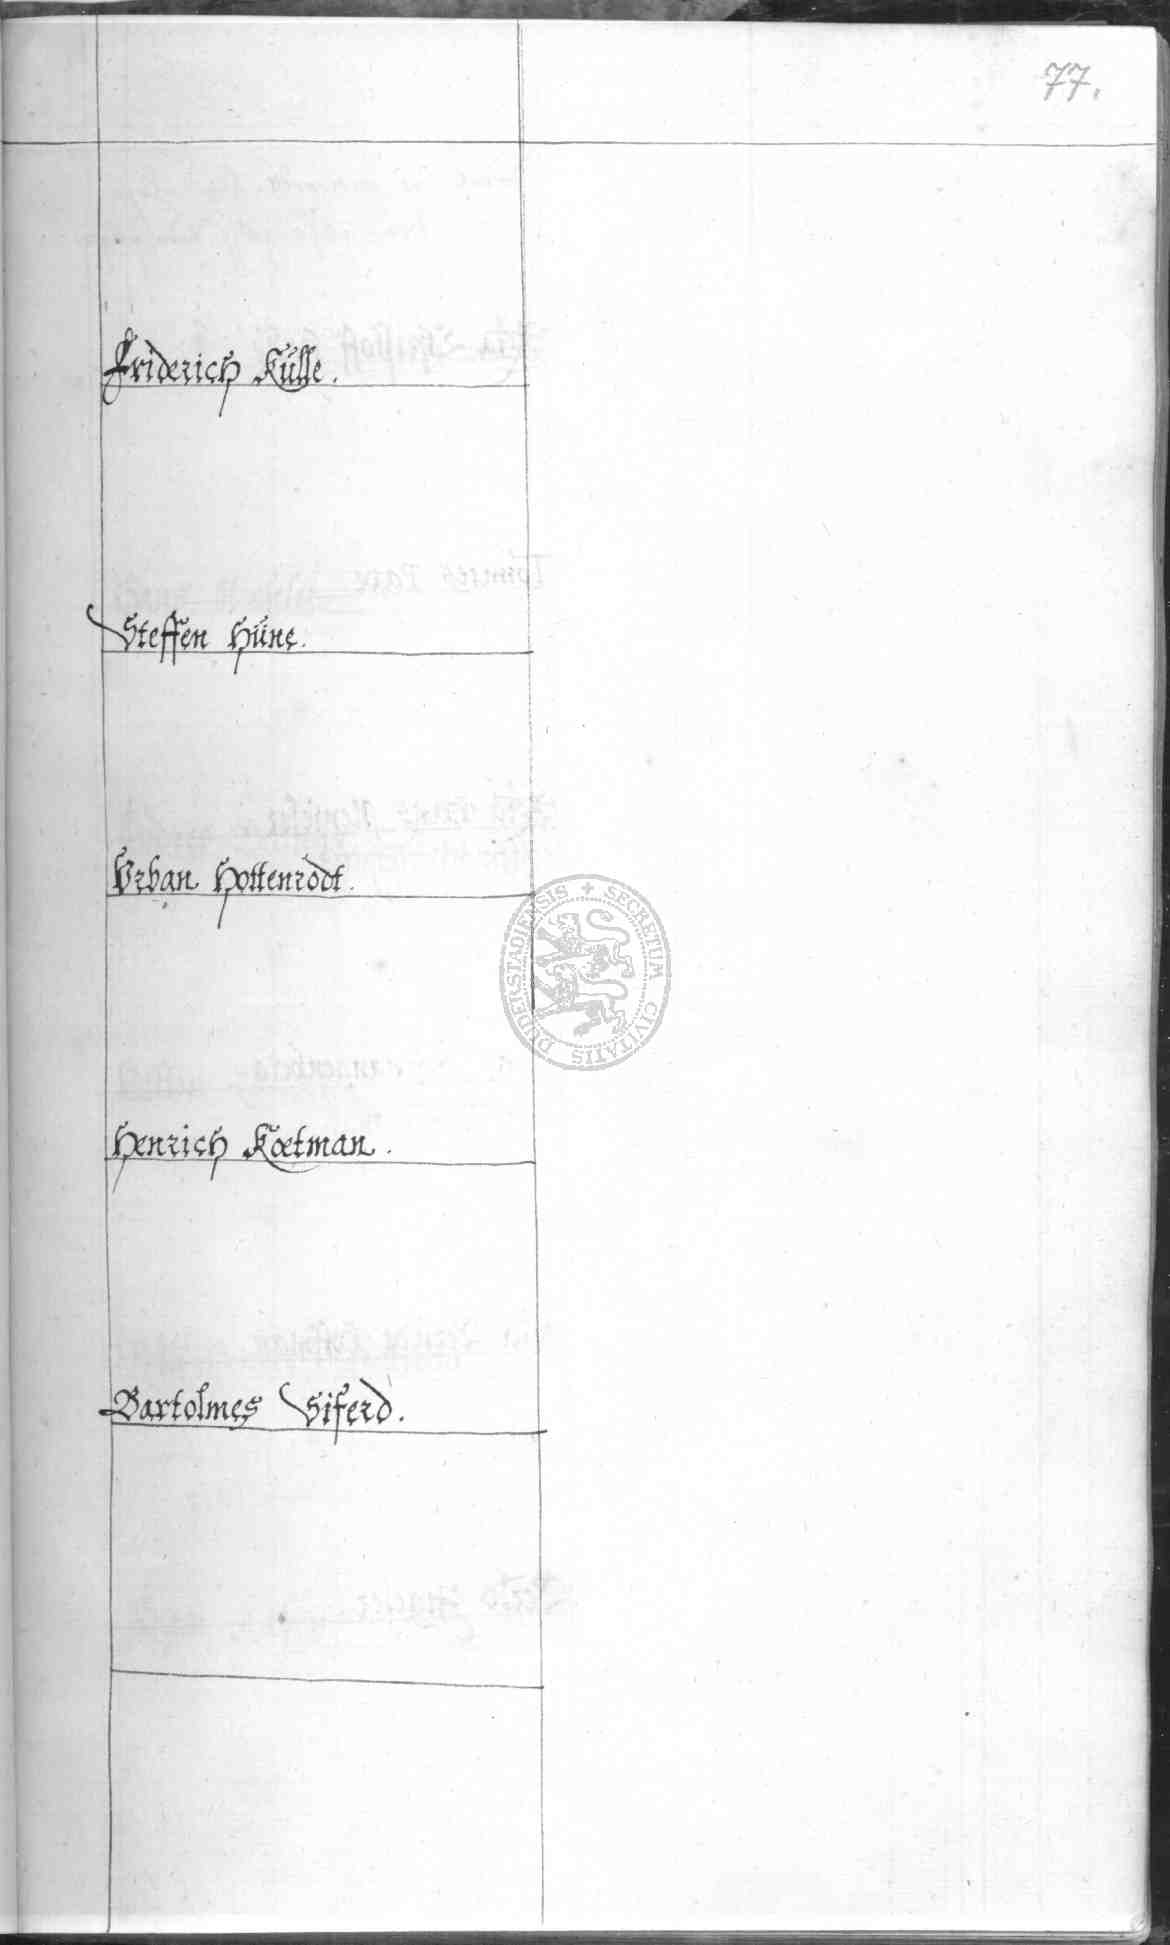 77.
Friderich Külle.
Steffen Hüne.
Vrban Hottenrodt.
SECRETUM CIVITATIS DUDERSTADIENSIS
Henrich Koetman.
Bartolmes Siferd.